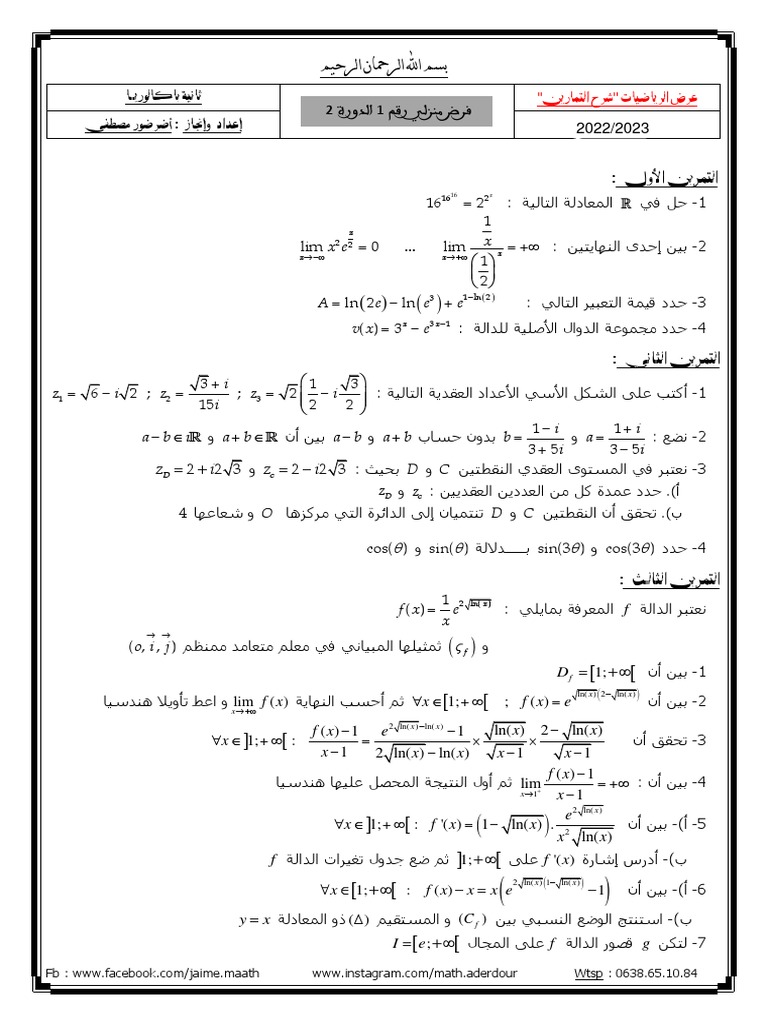 بسم الله الرحمان الرحيم
عرض الرياضيات "شرح التمارين"
2022/2023
فرض منزلي رقم 1 الدورة 2
ثانية باكالوريا
إعداد وإنجاز : أضرضور مصطفى
التمرين الأول :
1- حل في ℝ المعادلة التالية : 16^{16^{16}} = 2^{2^x}
2- بين إحدى النهايتين : lim_{x→+∞} (1/x)/(1/2)^x = +∞ ... lim_{x→−∞} x²e^{x/2} = 0
3- حدد قيمة التعبير التالي : A = ln(2e) − ln(e³) + e^{1−ln(2)}
4- حدد مجموعة الدوال الأصلية للدالة : v(x) = 3^x − e^{3x−1}
التمرين الثاني :
1- أكتب على الشكل الأسي الأعداد العقدية التالية : z₁ = √6 − i√2 ; z₂ = (√3 + i)/15i ; z₃ = √2(1/2 − i√3/2)
2- نضع : a = (1+i)/(3−5i) و b = (1−i)/(3+5i) بدون حساب a+b و a−b بين أن a+b∈ℝ و a−b∈iℝ
3- نعتبر في المستوى العقدي النقطتين C و D بحيث : z_c = 2 − i2√3 و z_D = 2 + i2√3
أ). حدد عمدة كل من العددين العقديين : z_c و z_D
ب). تحقق أن النقطتين C و D تنتميان إلى الدائرة التي مركزها O و شعاعها 4
4- حدد cos(3θ) و sin(3θ) بـــدلالة sin(θ) و cos(θ)
التمرين الثالث :
نعتبر الدالة f المعرفة بمايلي : f(x) = (1/x)e^{2√ln(x)}
و (ς_f) تمثيلها المبياني في معلم متعامد ممنظم (o, i⃗, j⃗)
1- بين أن D_f = [1;+∞[
2- بين أن ∀x∈[1;+∞[ ; f(x) = e^{√ln(x)(2−√ln(x))} ثم أحسب النهاية lim_{x→+∞} f(x) و اعط تأويلا هندسيا
3- تحقق أن ∀x∈]1;+∞[ : (f(x)−1)/(x−1) = (e^{2√ln(x)−ln(x)} −1)/(2√ln(x)−ln(x)) × √ln(x)/√x−1 × (2−√ln(x))/√x−1
4- بين أن : lim_{x→1⁺} (f(x)−1)/(x−1) = +∞ ثم أول النتيجة المحصل عليها هندسيا
5- أ)- بين أن ∀x∈]1;+∞[ : f'(x) = (1−√ln(x)).e^{2√ln(x)}/(x²√ln(x))
ب)- أدرس إشارة f'(x) على ]1;+∞[ ثم ضع جدول تغيرات الدالة f
6- أ)- بين أن ∀x∈[1;+∞[ : f(x)−x = x(e^{2√ln(x)(1−√ln(x))} −1)
ب)- استنتج الوضع النسبي بين (C_f) و المستقيم (Δ) ذو المعادلة y = x
7- لتكن g قصور الدالة f على المجال I = [e;+∞[
Fb : www.facebook.com/jaime.maath www.instagram.com/math.aderdour Wtsp : 0638.65.10.84